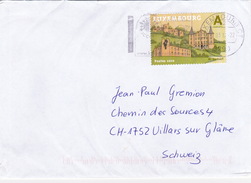 LUXEMBOURG
A
Jean-Paul Gremion
Chemin des Sources 4
CH-1752 Villars sur Glâne
Schweiz